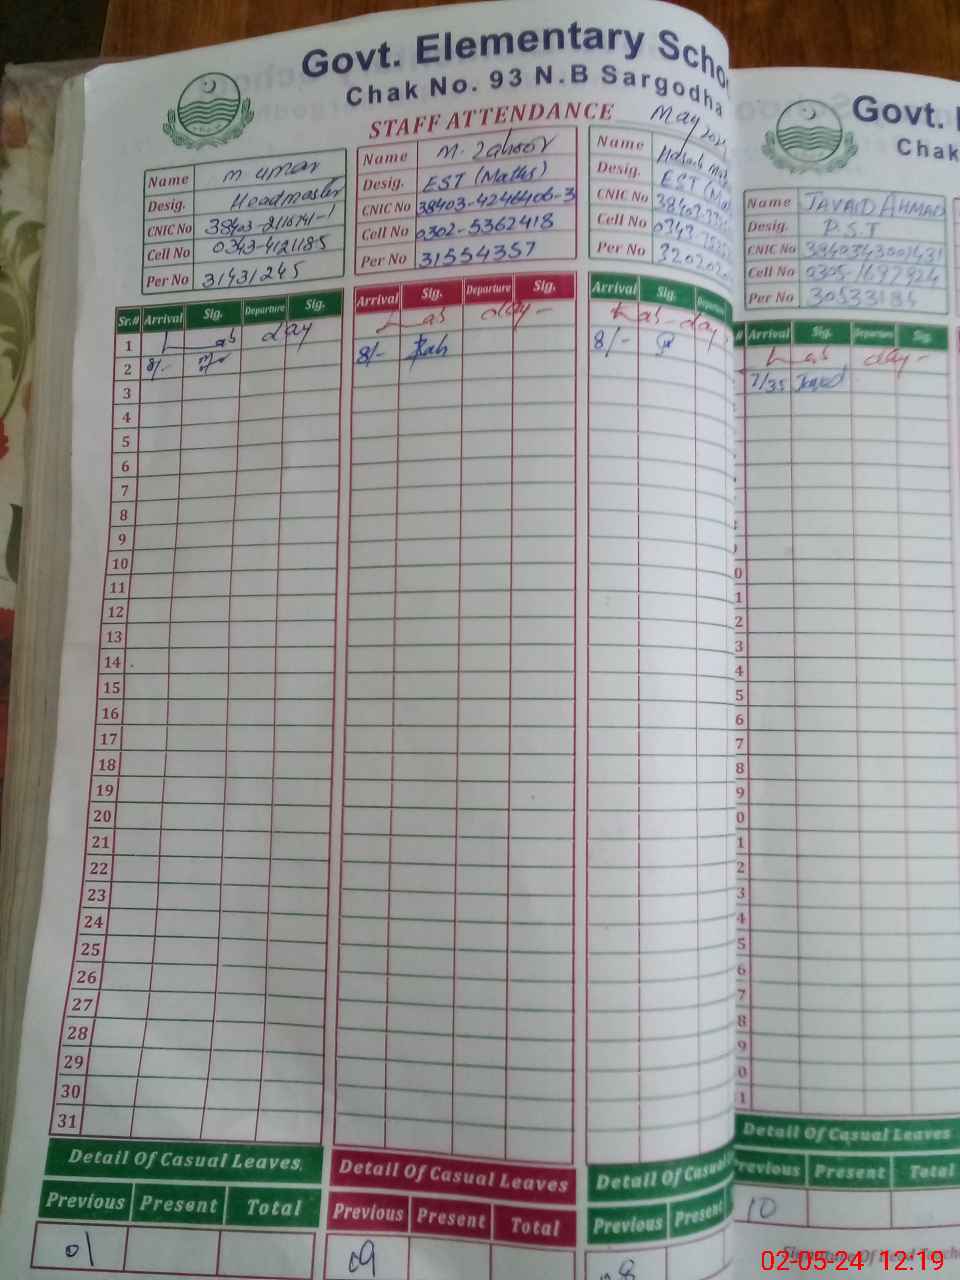 Govt. Elementary Scho
Chak No. 93 N.B Sargodha
STAFF ATTENDANCE
May 
Name M umar
Desig. Headmaster
CNIC No
Cell No 0343-4121185
Per No 31431245
Name M. Zahoor
Desig. EST (Maths)
CNIC No 38403-4246406-3
Cell No 0302-5362418
Per No 31554357
Name
Desig. EST
CNIC No
Cell No
Per No 320202
Sr.# Arrival Sig. Departure Sig.
Arrival Sig. Departure Sig.
Arrival Sig. Departure
1 Lab day Lab day - Lab - day
2 8/- 8/- 8/-
3
4
5
6
7
8
9
10
11
12
13
14
15
16
17
18
19
20
21
22
23
24
25
26
27
28
29
30
31
Detail Of Casual Leaves
Previous Present Total
01
Detail Of Casual Leaves
Previous Present Total
09
Detail Of Casual
Previous Present
08
Govt.
Chak
Name JAVAID AHMAD
Desig. P.S.T
CNIC No
Cell No 0305-1697924
Per No 30533184
# Arrival Sig. Departure Sig.
Lab day -
7/35 Javed
0
1
2
3
4
5
6
7
8
9
0
1
2
3
4
5
6
7
8
9
0
1
Detail Of Casual Leaves
revious Present Total
10
Signature Of Head Teache
02-05-24 12:19